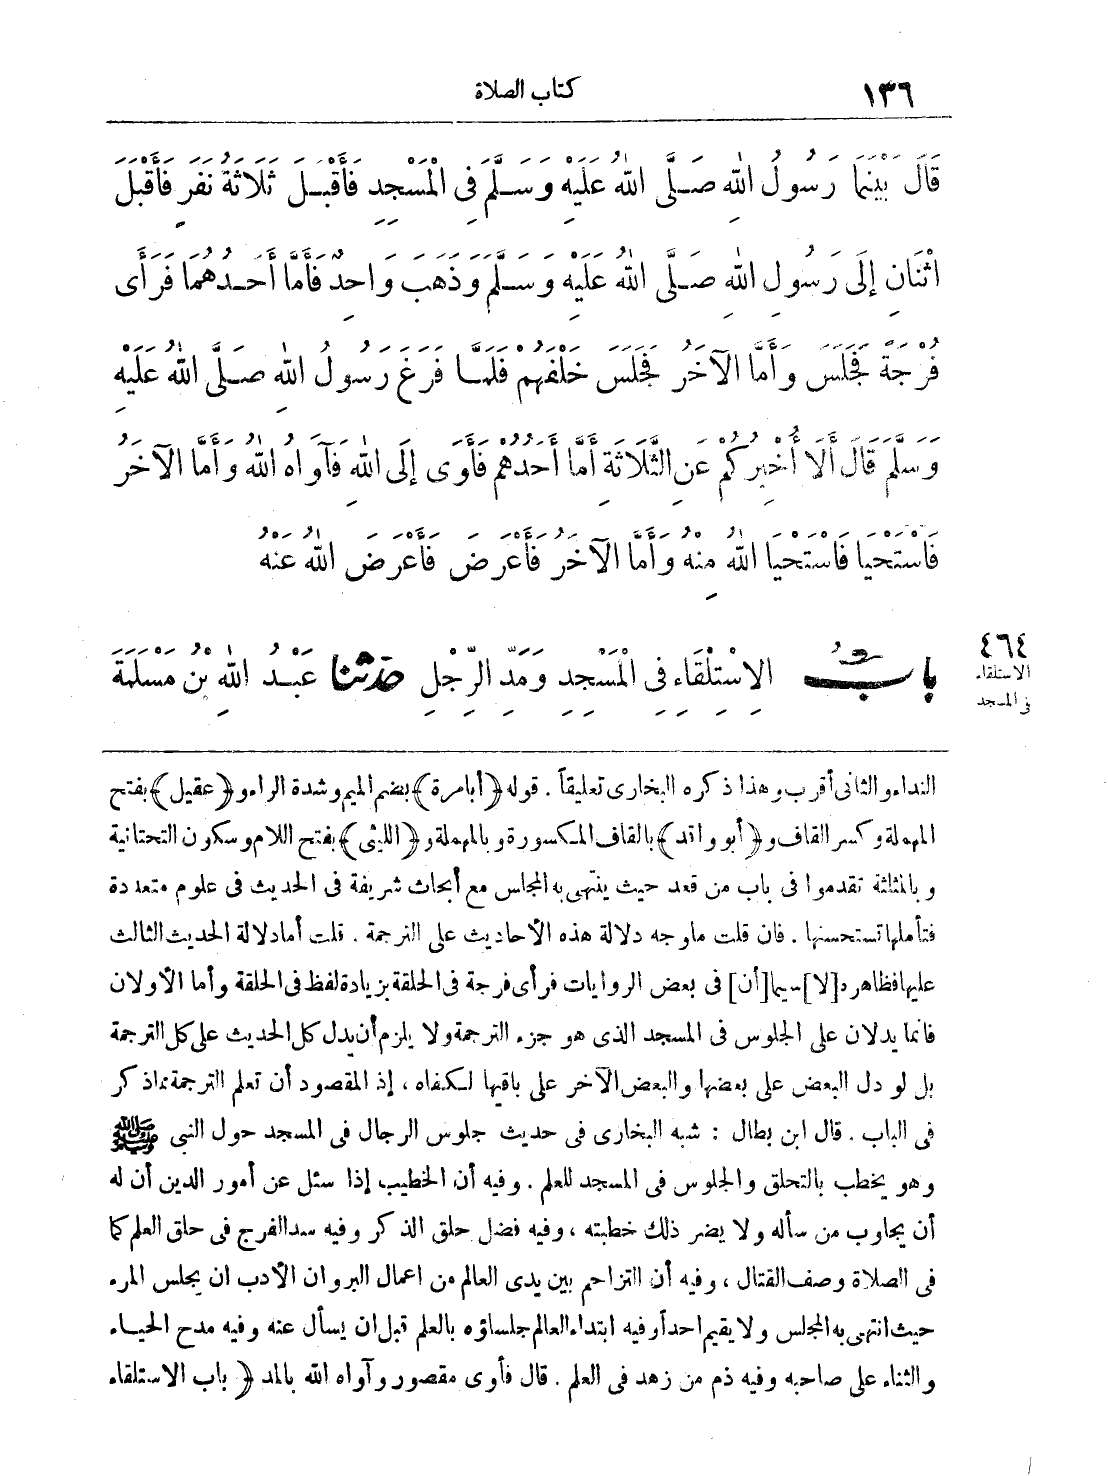 ١٣٦ كتاب الصلاة
قَالَ بَيْنَمَا رَسُولُ اللهِ صَلَّى اللهُ عَلَيْهِ وَسَلَّمَ فِى الْمَسْجِدِ فَأَقْبَلَ ثَلَاثَةُ نَفَرٍ فَأَقْبَلَ
اثْنَانِ إِلَى رَسُولِ اللهِ صَلَّى اللهُ عَلَيْهِ وَسَلَّمَ وَذَهَبَ وَاحِدٌ فَأَمَّا أَحَدُهُمَا فَرَأَى
فُرْجَةً فَجَلَسَ وَأَمَّا الْآخَرُ فَجَلَسَ خَلْفَهُمْ فَلَمَّا فَرَغَ رَسُولُ اللهِ صَلَّى اللهُ عَلَيْهِ
وَسَلَّمَ قَالَ أَلَا أُخْبِرُكُمْ عَنِ الثَّلَاثَةِ أَمَّا أَحَدُهُمْ فَأَوَى إِلَى اللهِ فَآوَاهُ اللهُ وَأَمَّا الْآخَرُ
فَاسْتَحْيَا فَاسْتَحْيَا اللهُ مِنْهُ وَأَمَّا الْآخَرُ فَأَعْرَضَ فَأَعْرَضَ اللهُ عَنْهُ
٤٦٤
الاستلقاء
فى المسجد
بَابُ الِاسْتِلْقَاءِ فِى الْمَسْجِدِ وَمَدِّ الرِّجْلِ حَدَّثَنَا عَبْدُ اللهِ بْنُ مَسْلَمَةَ
النداء والثانى أقرب وهذا ذكره البخارى تعليقاً . قوله ﴿أبا مرة﴾ بضم الميم وشدة الراء و﴿عقيل﴾ بفتح
المهملة وكسر القاف و﴿أبو واقد﴾ بالقاف المكسورة وبالمهملة و﴿الليثى﴾ بفتح اللام وسكون التحتانية
وبالمثلثة تقدموا فى باب من قعد حيث ينتهى به المجلس مع أبحاث شريفة فى الحديث فى علوم متعددة
فتأملها تستحسنها . فان قلت ماوجه دلالة هذه الأحاديث على الترجمة . قلت أما دلالة الحديث الثالث
عليها فظاهرة [لا] سيما [أن] فى بعض الروايات فرأى فرجة فى الحلقة بزيادة لفظ فى الحلقة وأما الأولان
فانما يدلان على الجلوس فى المسجد الذى هو جزء الترجمة ولا يلزم أن يدل كل الحديث على كل الترجمة
بل لو دل البعض على بعضها والبعض الآخر على باقيها لكفاه ، إذ المقصود أن تعلم الترجمة مما ذكر
فى الباب . قال ابن بطال : شبه البخارى فى حديث جلوس الرجال فى المسجد حول النبى ﷺ
وهو يخطب بالتحلق والجلوس فى المسجد للعلم . وفيه أن الخطيب إذا سئل عن أمور الدين أن له
أن يجاوب من سأله ولا يضر ذلك خطبته ، وفيه فضل حلق الذكر وفيه سد الفرج فى حلق العلم كما
فى الصلاة وصف القتال ، وفيه أن التزاحم بين يدى العالم من اعمال البر وان الأدب ان يجلس المرء
حيث انتهى به المجلس ولا يقيم احداً وفيه ابتداء العالم جلساؤه بالعلم قبل ان يسأل عنه وفيه مدح الحياء
والثناء على صاحبه وفيه ذم من زهد فى العلم . قال فأوى مقصور وآواه الله بالمد ﴿ باب الاستلقاء